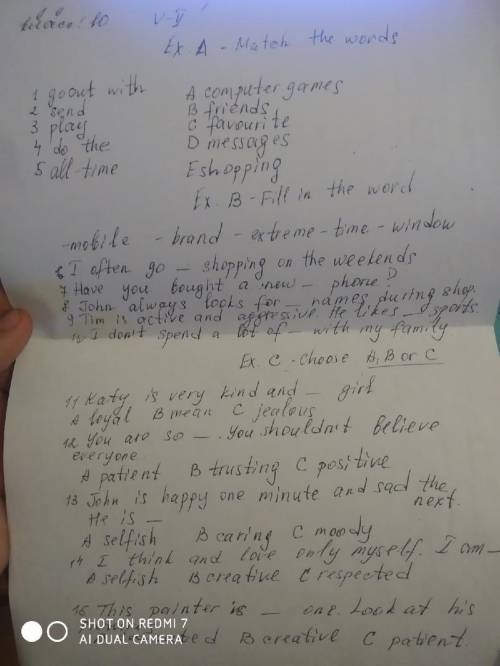 класс: 10 V-II
Ex A - Match the words
1 go out with A computer games
2 send B friends
3 play C favourite
4 do the D messages
5 all-time E shopping
Ex. B - Fill in the word
-mobile - brand - extreme - time - window
6 I often go — shopping on the weekends
7 Have you bought a new — phone?
8 John always looks for — names during shop.
9 Tim is active and aggressive. He likes — sports
10 I don't spend a lot of — with my family
Ex. C - choose A, B or C
11 Katy is very kind and — girl
A loyal B mean C jealous
12 You are so —. You shouldn't believe
everyone.
A patient B trusting C positive
13 John is happy one minute and sad the
next.
He is —
A selfish B caring C moody
14 I think and love only myself. I am —
A selfish B creative C respected
15 This painter is — one. Look at his
B creative C patient.
SHOT ON REDMI 7
AI DUAL CAMERA